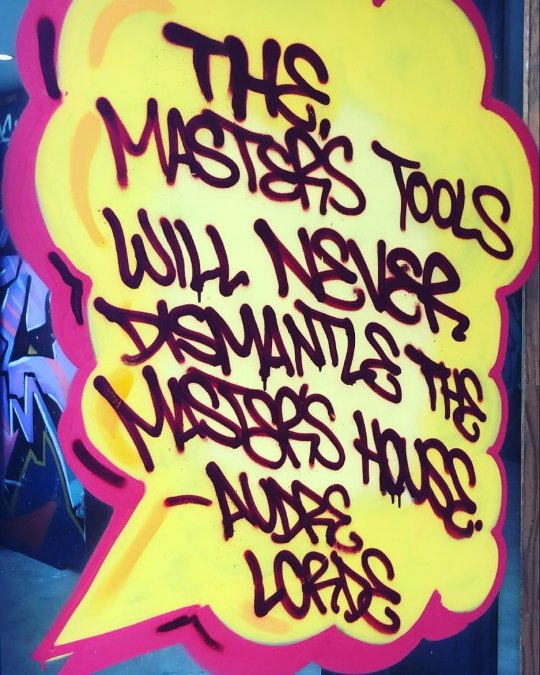 THE
MASTER'S TOOLS
WILL NEVER
DISMANTLE THE
MASTER'S HOUSE.
- AUDRE
LORDE